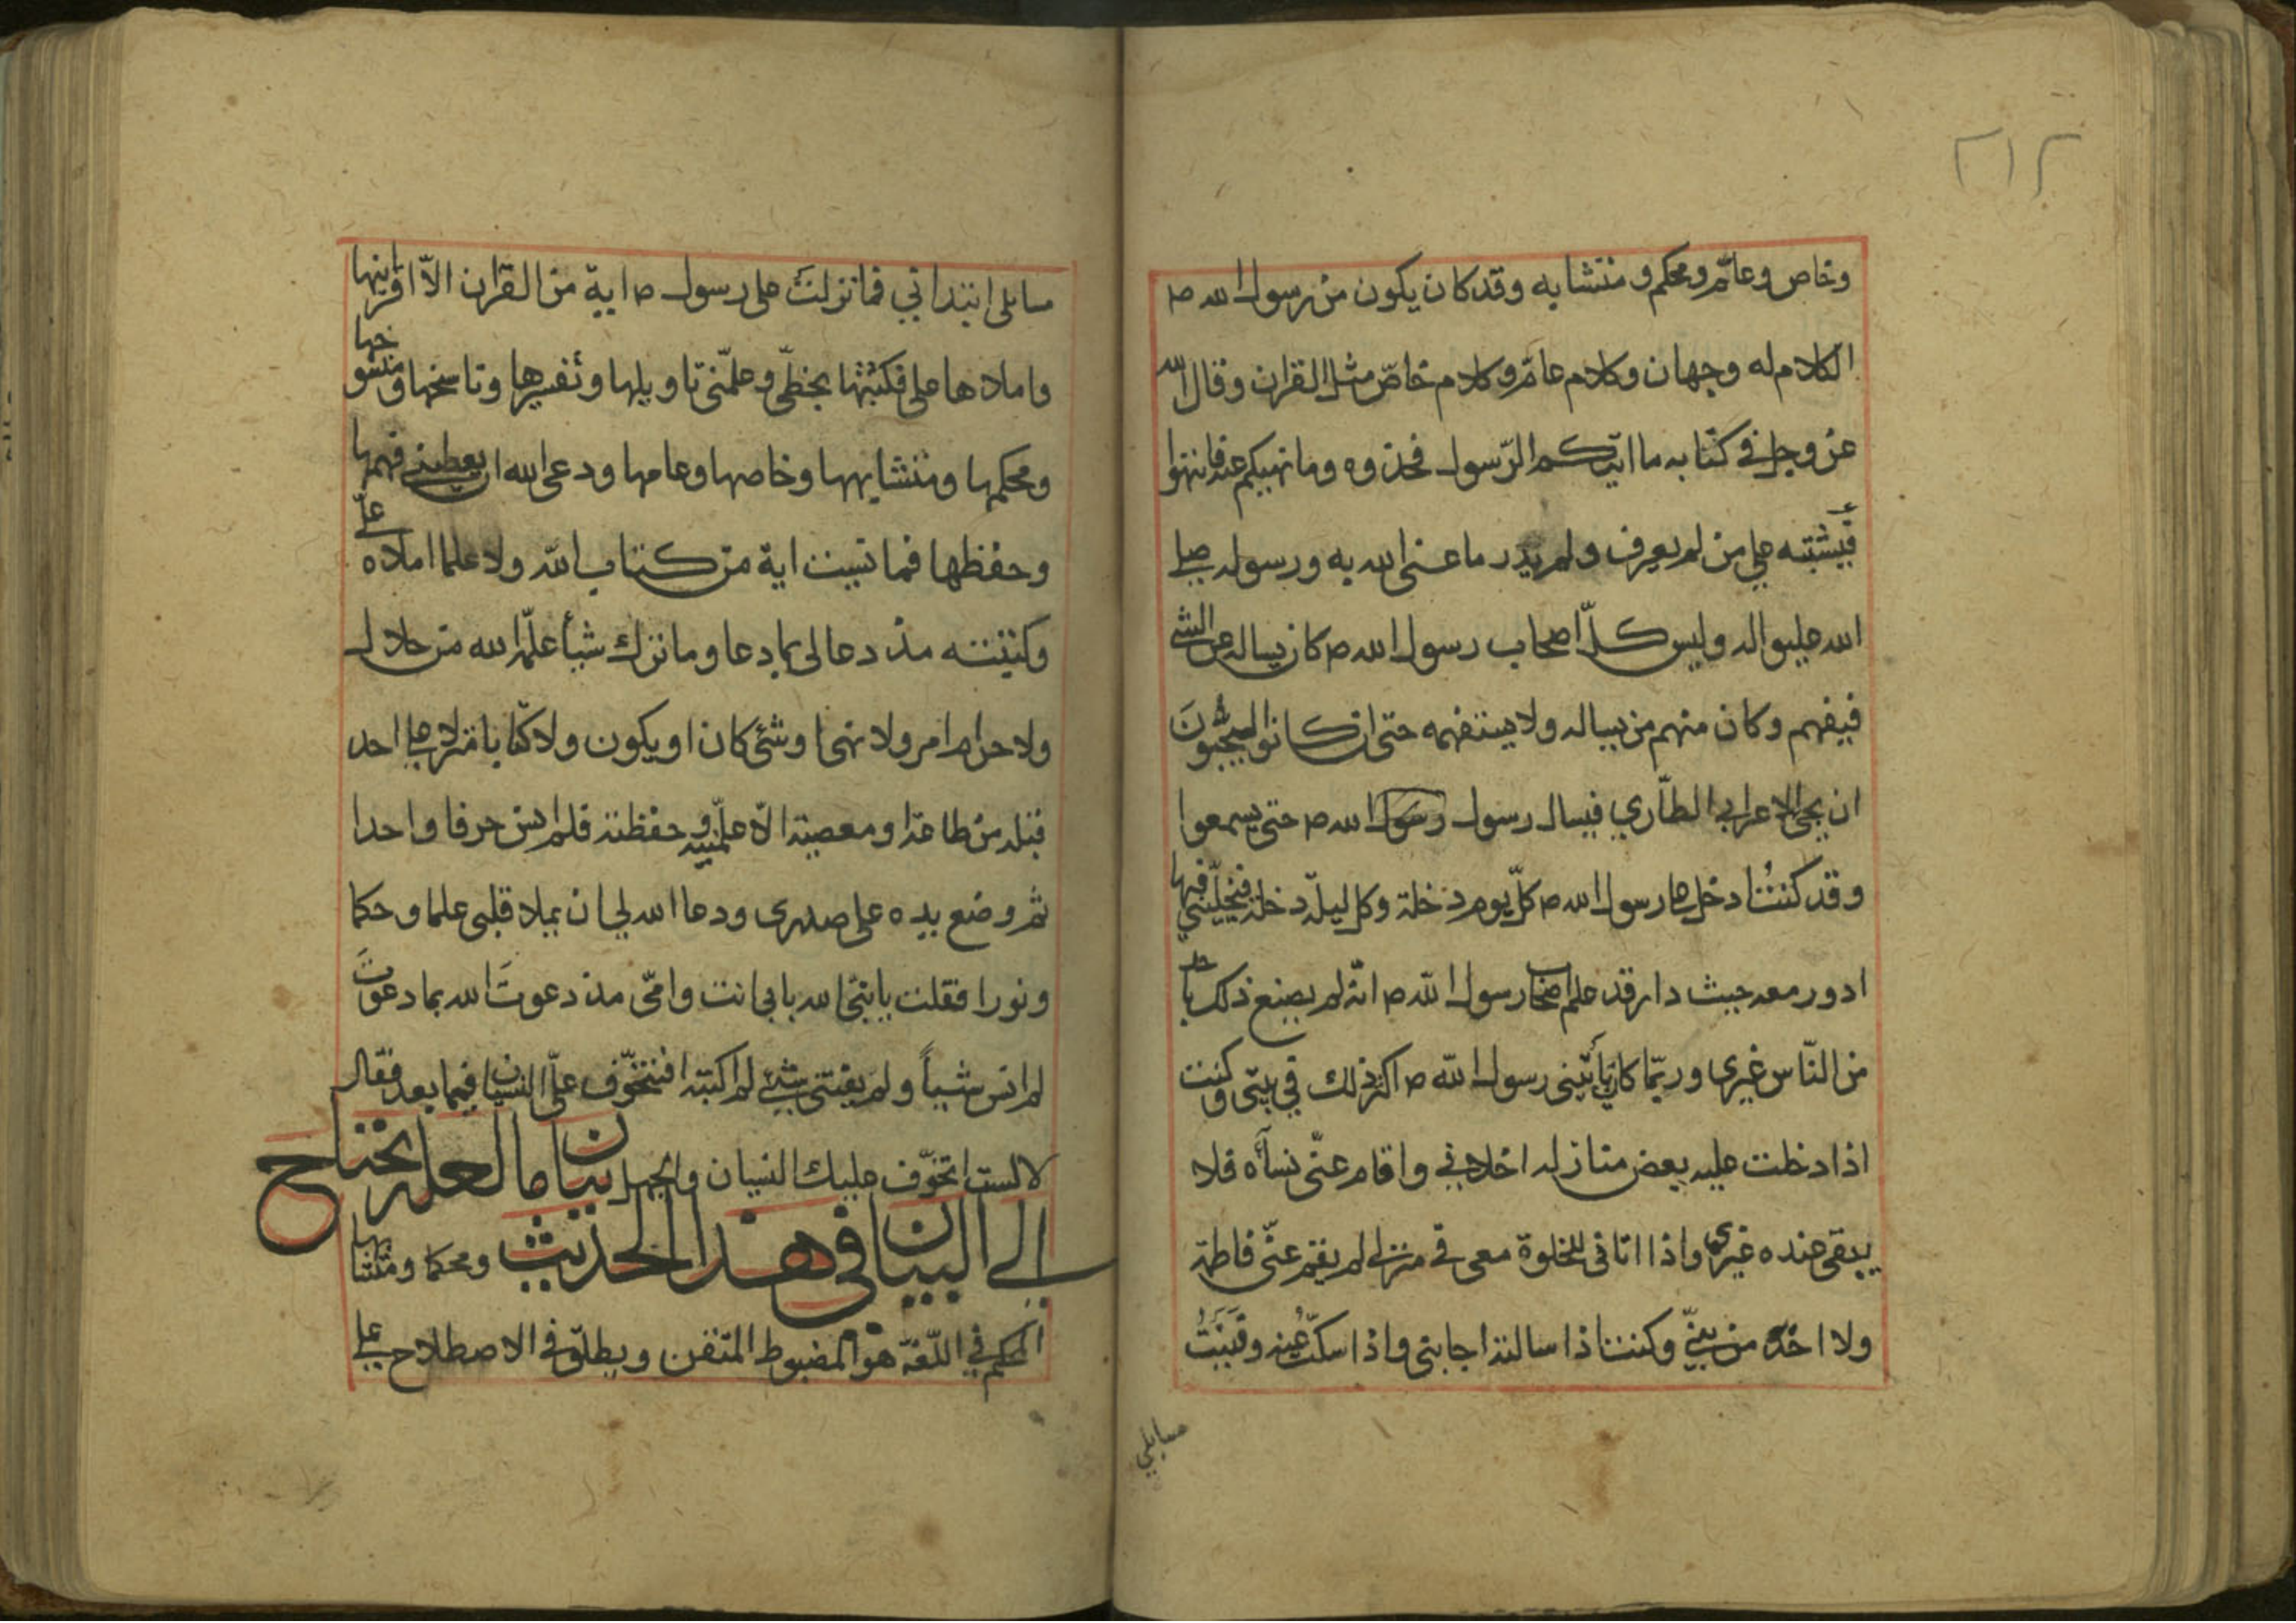 ٢١٢
وخاص وعامّ ومحكم ومتشابه وقد كان يكون من رسول الله ص
الكلام له وجهان وكلام عامّ وكلام خاصّ مثل القران وقال الله
عز وجل في كتابه ما اتيكم الرّسول فخذوه وما نهيكم عنه فانتهوا
فيشتبه على من لم يعرف ولم يدر ما عنى الله به ورسوله صلى
الله عليه واله وليس كلّ اصحاب رسول الله ص كان يساله عن الشئ
فيفهم وكان منهم من يساله ولا يستفهمه حتى ان كانوا ليحبّون
ان يجئ الاعرابي الطّاري فيسال رسول رسول الله ص حتى يسمعوا
وقد كنت ادخل على رسول الله ص كلّ يوم دخلة وكل ليلة دخلة فيخلّيني فيها
ادور معه حيث دار قد علم اصحاب رسول الله ص انّه لم يصنع ذلك باحد
من النّاس غيرى وربّما كان ياتينى رسول الله ص اكثر ذلك في بيتى وكنت
اذا دخلت عليه بعض منازله اخلانى واقام عنّى نسآءه فلا
يبقى عنده غيرى واذا اتانى للخلوة معى في منزلى لم يقم عنّى فاطمة
ولا احد من بنيّ وكنت اذا سالته اجابنى واذا سكتّ عنه وفنيت
مسايلي
مسايلى ابتدانى فما نزلت على رسول ص اية من القران الاّ اقرانيها
واملاها على فكتبتها بخطّى وعلّمنى تاويلها وتفسيرها وناسخها ومنسوخها
ومحكمها ومتشابهها وخاصها وعامها ودعى الله ان يعطينى فهمها
وحفظها فما نسيت اية من كتاب الله ولا علما املاه علىّ
وكتبته مذ دعا لى بما دعا وما ترك شيأ علّمه الله من حلال
ولا حرام امر ولا نهى او شئ كان او يكون ولا كتاب منزل على احد
قبله من طاعة او معصية الاّ علّمنيه وحفظته فلم انس حرفا واحدا
ثم وضع يده على صدرى ودعا الله لى ان يملا قلبى علما وحكما
ونورا فقلت يا نبىّ الله بابى انت وامّى مذ دعوتَ الله بما دعوتَ
لم انس شيأً ولم يفتنى شئ لم اكتبه افتتخوّف علىّ النسيان فيما بعد فقال
لا لست اتخوّف عليك النسيان والجهل بيان ما لعله يحتاج
الى البيان فى هذا الحديث ومحكما ومتشابها
المحكم في اللّغة هو المضبوط المتقن ويطلق في الاصطلاح على